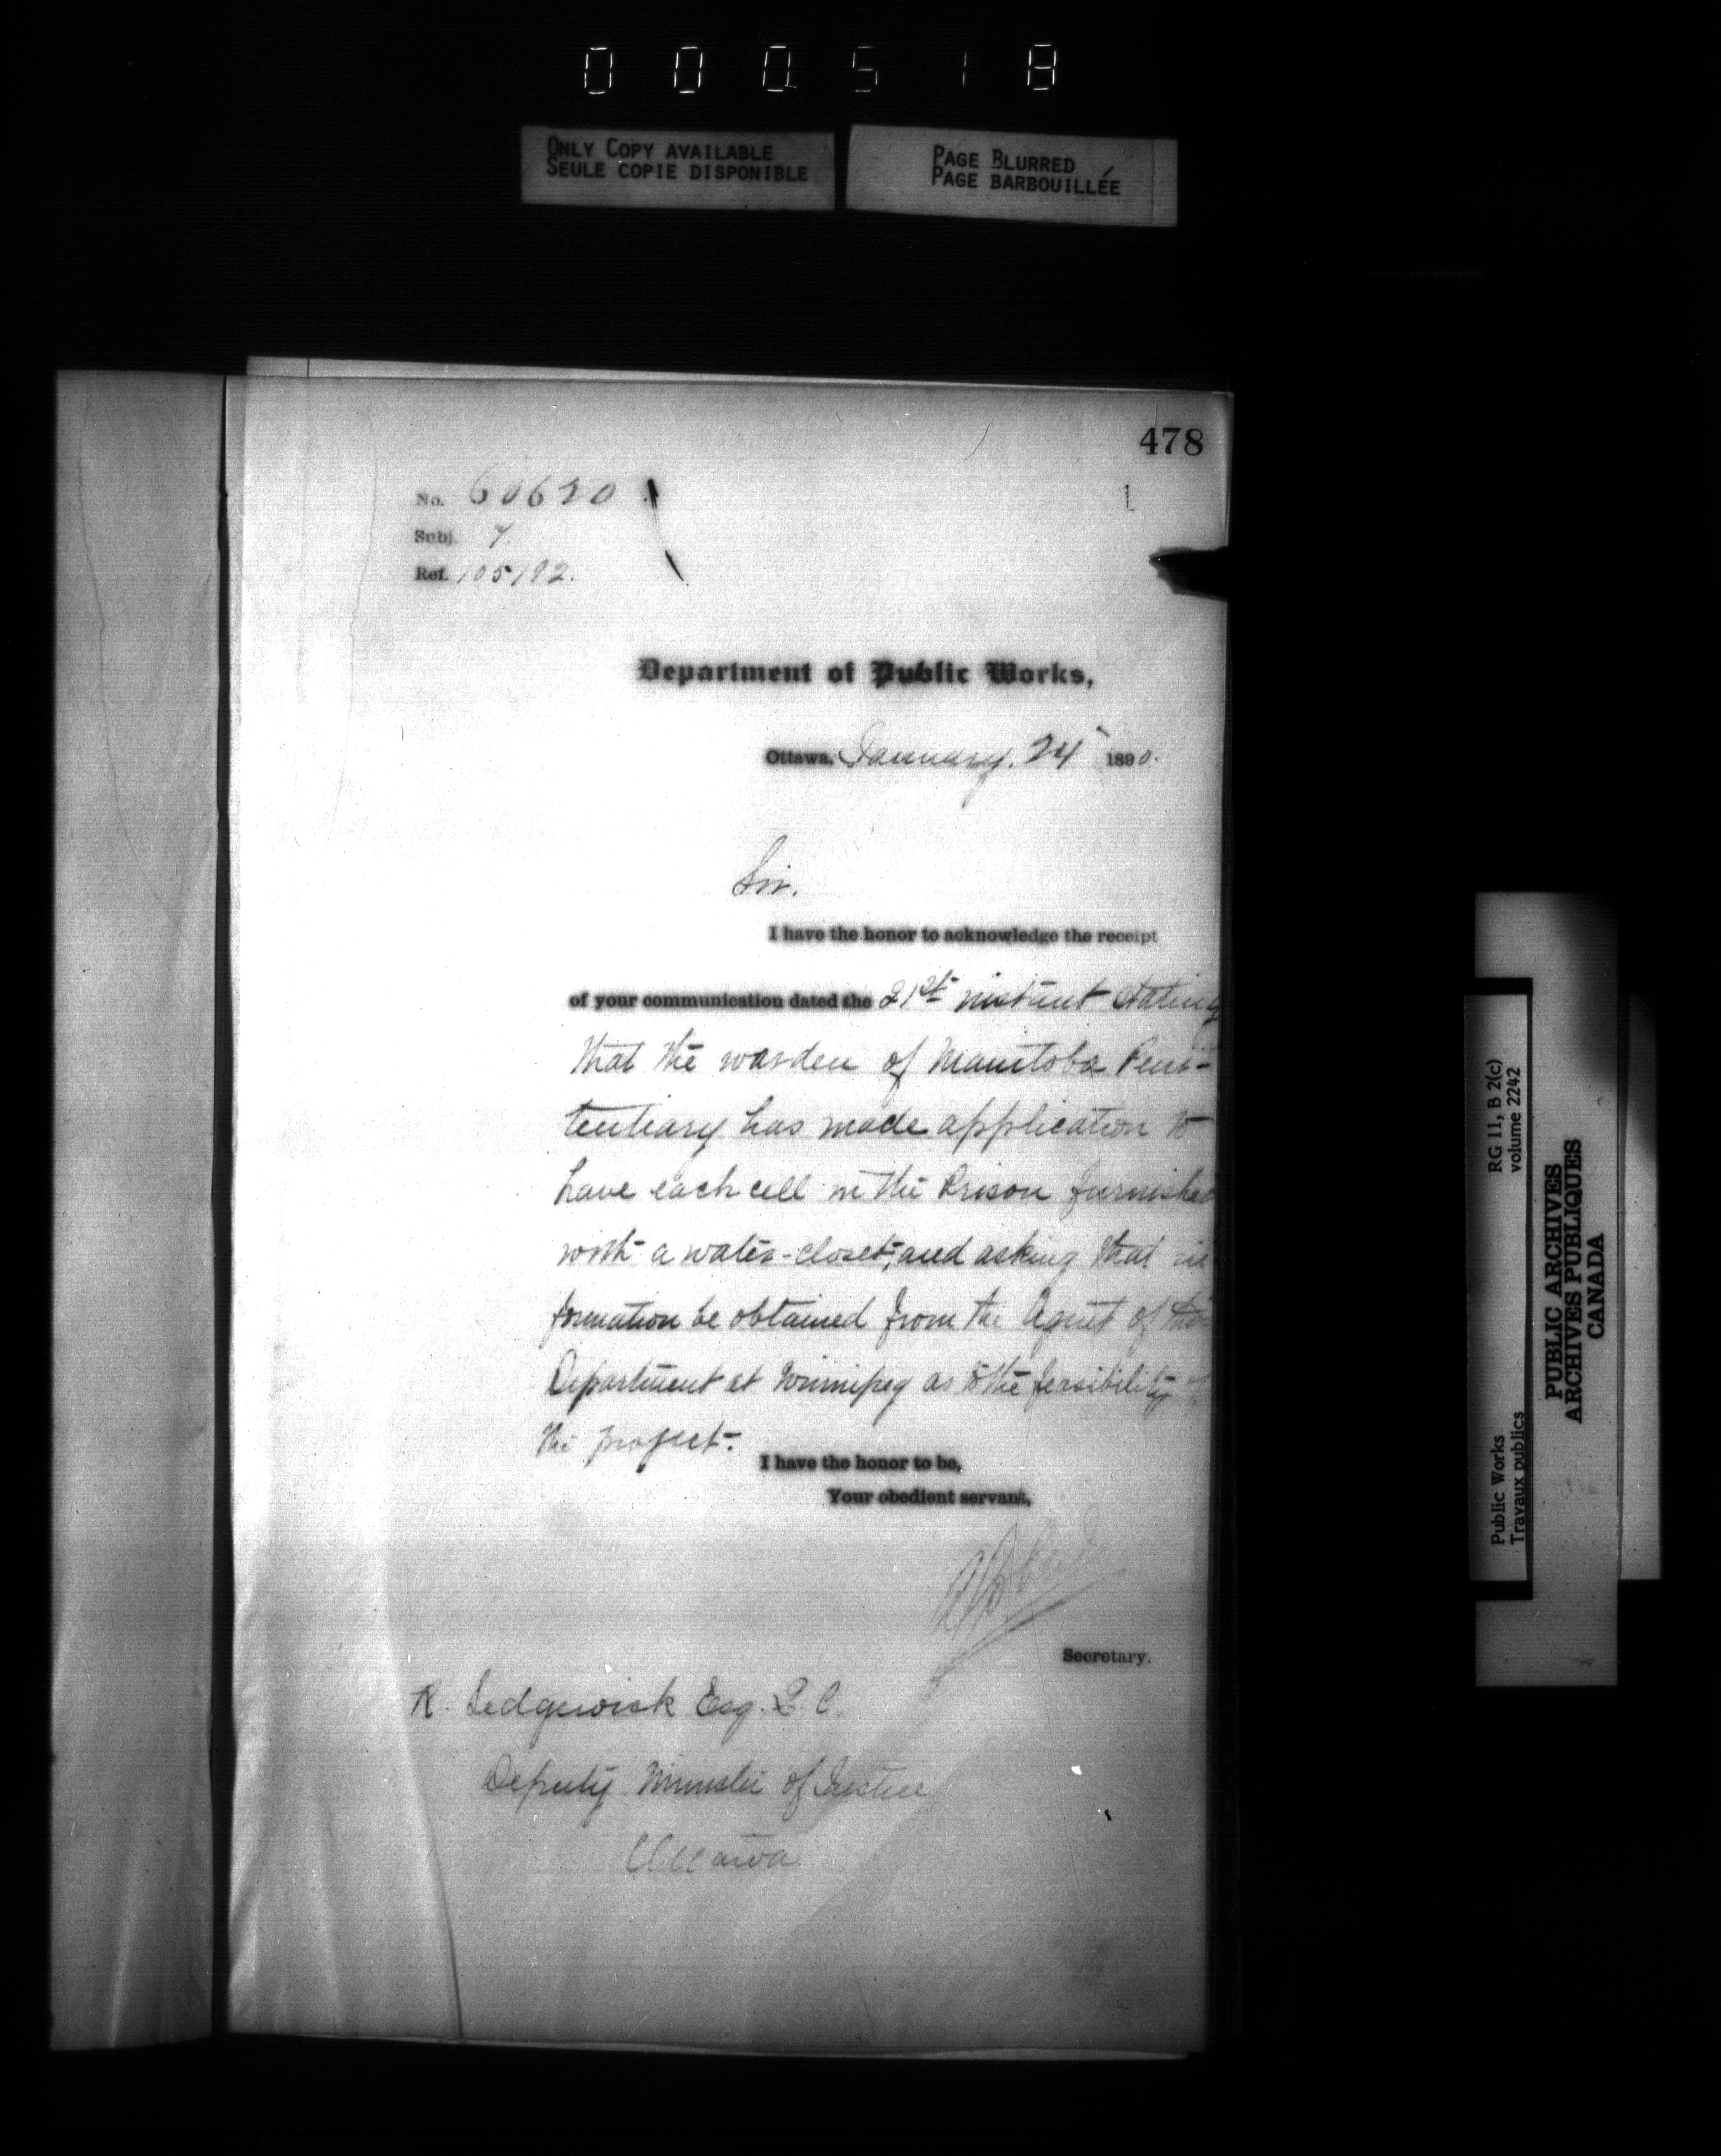 000518
ONLY COPY AVAILABLE
SEULE COPIE DISPONIBLE
PAGE BLURRED
PAGE BARBOUILLÉE
478
No. 60620
Subj. 7.
Ref. 105192.
Department of Public Works,
Ottawa, January. 24 1890.
Sir.
I have the honor to acknowledge the receipt
of your communication dated the 21st instant stating
that the warden of Manitoba Peni-
tentiary has made application to
have each cell in the Prison furnished
with a water-closet, and asking that in
formation be obtained from the Agent of this
Department at Winnipeg as to the feasibility of
the project.
I have the honor to be,
Your obedient servant,
Secretary.
R. Sedgewick Esq. Q. C.
Deputy Minister of Justice
Ottawa
Public Works
Travaux publics
RG 11, B 2(c)
volume 2242
PUBLIC ARCHIVES
ARCHIVES PUBLIQUES
CANADA